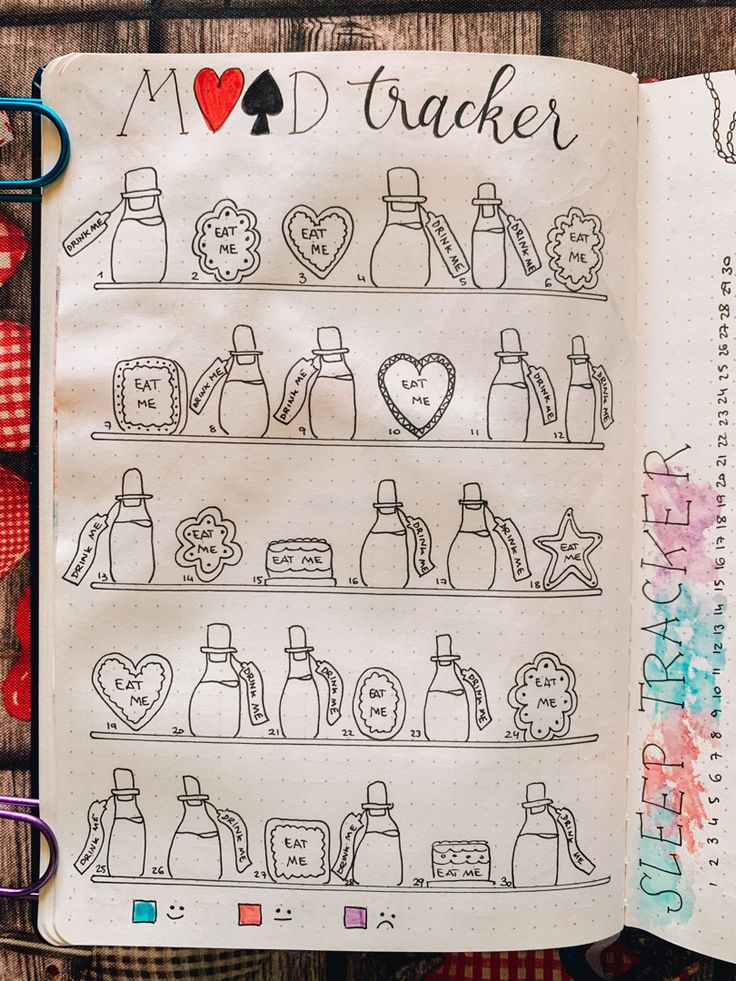 M♥♠D tracker
DRINK ME EAT ME EAT ME DRINK ME DRINK ME EAT ME
1 2 3 4 5 6
EAT ME DRINK ME DRINK ME EAT ME DRINK ME DRINK ME
7 8 9 10 11 12
DRINK ME EAT ME EAT ME DRINK ME DRINK ME EAT ME
13 14 15 16 17 18
EAT ME DRINK ME DRINK ME EAT ME DRINK ME EAT ME
19 20 21 22 23 24
DRINK ME DRINK ME EAT ME DRINK ME EAT ME DRINK ME
25 26 27 28 29 30
SLEEP TRACKER
1 2 3 4 5 6 7 8 9 10 11 12 13 14 15 16 17 18 19 20 21 22 23 24 25 26 27 28 29 30